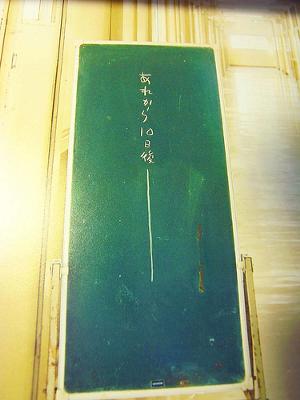 あれから10日後―